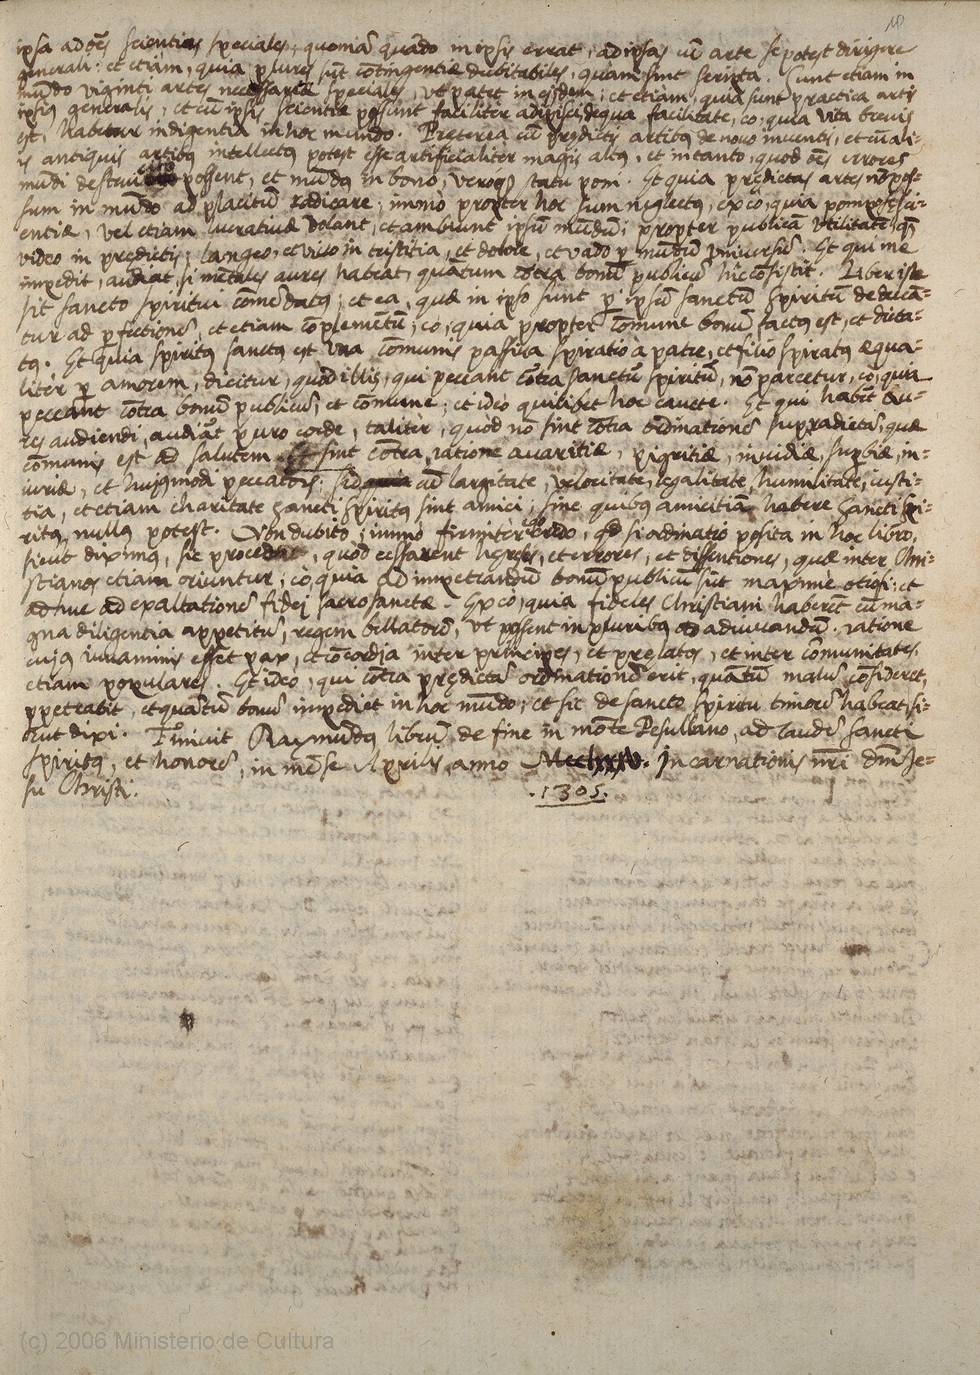 ipsa ad oẽs scientias speciales, quoniã quãdo in ipsis errat, ad ipsas cũ arte se potest dirigere
generali: et etiam, quia plures sũt cõtingentiæ dubitabiles, quam sint scripta. Sunt etiam in
mũdo viginti artes necessariæ speciales, vt patet in eisdem; et etiam, quia sunt practica artis
ipsiꝰ generalis, et cũ ipsis scientiæ possunt faciliter adipisci, de qua facilitate, eo, quia vita brevis
est, habetur indigentia in hoc mundo. Preterea cũ prędictis artibꝰ de novo inventis, et cũ ali-
is antiquis artibꝰ intellectꝰ potest esse artificialiter magis altꝰ, et in tanto, quod oẽs errores
mũdi destrui possent, et mũdꝰ in bono, veroqꝫ statu poni. Et quia prędictas artes nõ pos-
sum in mũdo ad placitũ radicare; immo propter hoc sum neglectꝰ, ex eo, quia pomposè sci-
entiæ, vel etiam lucrativæ volant, et ambiunt ipsũ mũdũ; propter publicã vtilitatẽ, quã
video in prędictis; langeo, et vivo in tristitia, et dolore, et vado p mũdũ vniversũ. Et qui me
impedit, audiat, si mẽtales aures habeat, quãtum cõtra bonũ publicũ hic cõsistit. Liber iste
sit sancto spiritui cõmẽdatꝰ; et ea, quæ in ipso sunt p ipsũ sanctũ Spiritũ deducã-
tur ad pfectionẽ, et etiam cõplemẽtũ; eo, quia propter cõmune bonũ factꝰ est, et dicta-
tꝰ. Et quia spiritꝰ sanctꝰ est vna cõmunis passiva spiratio à patre, et filio spiratꝰ æqua-
liter p amorem, dicitur, quod illis, qui peccant cõtra sanctũ spiritũ, nõ parcetur, eo, quia
peccant cõtra bonũ publicũ, et cõmune; et ideo quilibet hoc cavete. Et qui habẽt au-
res audiendi, audiãt puro corde, taliter, quod nõ sint cõtra ordinationẽ supradictã, quæ
cõmunis est ad salutem. Et sint cõtra ratione avaritiæ, pigritiæ, invidiæ, supbiæ, in-
iuriæ, et hujꝰmodi peccatorũ: sed cũ largitate, velocitate, legalitate, humilitate, iusti-
tia, et etiam charitate sancti spiritꝰ sint amici, sine quibꝰ amicitiã habere sancti spi-
ritꝰ nullꝰ potest. Non dubito, immo firmiter credo, qd si ordinatio posita in hoc libro,
sicut diximꝰ, sic procedat, quod cessarent hęreses, et errores, et dissentiones, quæ inter Chri-
stianos etiam oriuntur, eo, quia ad impetrandũ bonũ publicũ sũt maxime otiosi; et
adhuc ad exaltationẽ fidei sacrosanctæ. Ex eo, quia fideles Christiani haberẽt cũ ma-
gna diligentia appetitũ, regem bellatorẽ, vt possent in pluribꝰ adiuvandũ. ratione
cujꝰ iuvaminis essẽt pax, et cõcordia inter principes, et prelatos, et inter comunitates,
etiam populares. Et ideo, qui cõtra prędictã ordinationẽ erit, quãtũ malũ cõsideret,
ppetrabit, et quãtũ bonũ impediet in hoc mũdo; et sic de sancto spiritu timorẽ habeat, si-
cut dixi. Finivit Raymũdꝰ librũ de fine in mõte Pesullano, ad laudẽ sancti
spiritꝰ, et honorẽ, in mẽse Aprilis, anno Incarnationis nr̃i dm̃i Je-
su Christi. .1305.